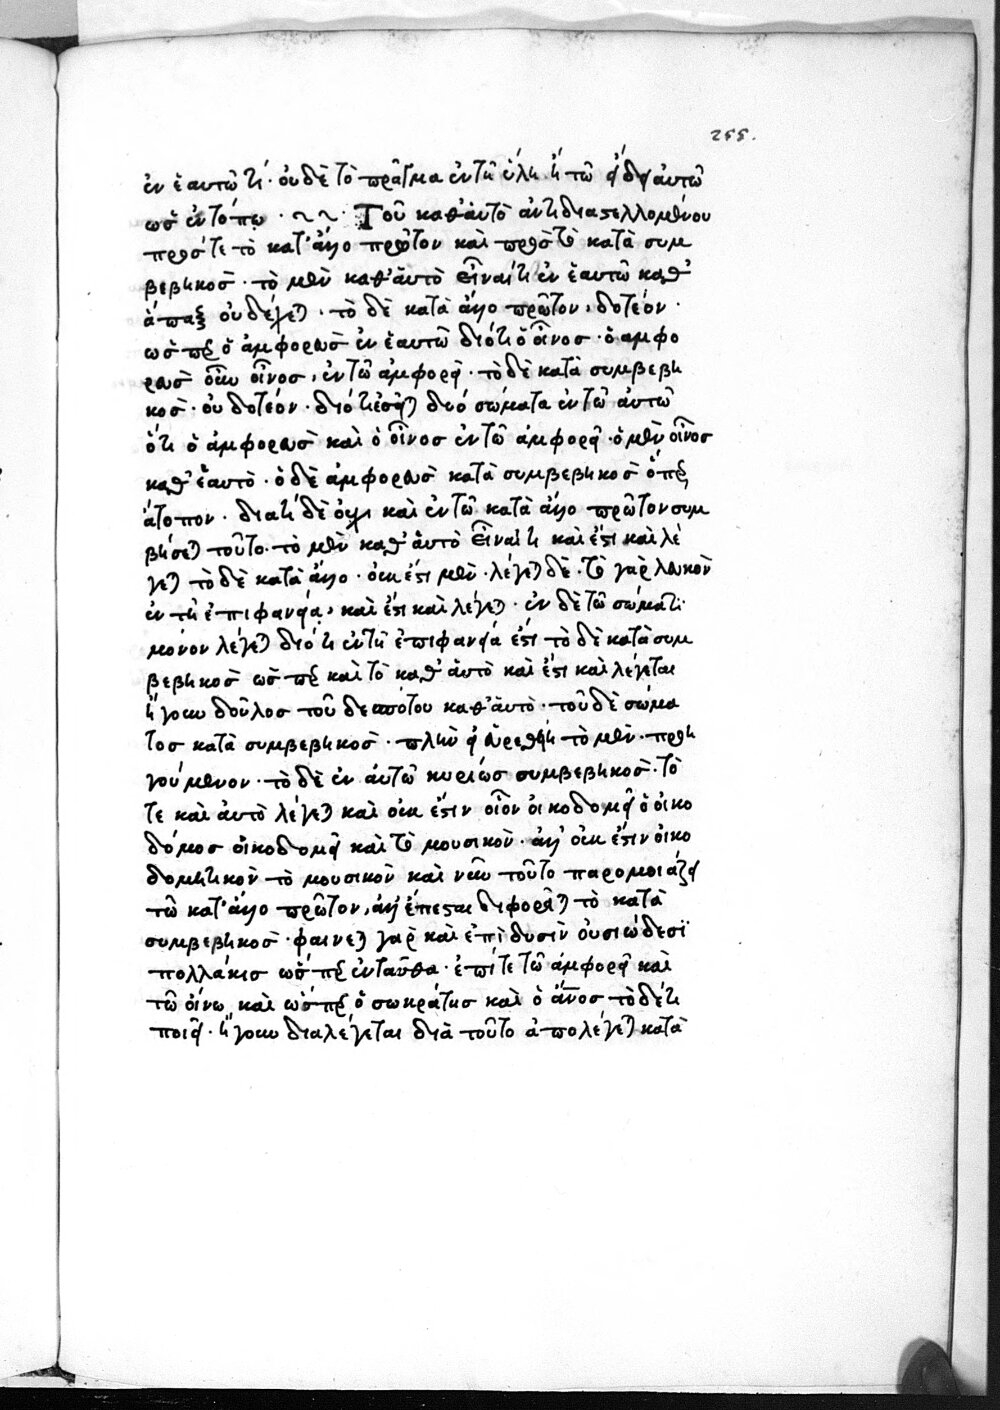 255.
ἐν ἑαυτῶ τι· οὐδὲ τὸ πρᾶγμα ἐν τῆ ὕλη ἢ τῶ εἴδει αὐτῶ
ὡς ἐν τόπῳ · ~ ~ · Τοῦ καθ' αὑτὸ ἀντιδιαστελλομένου
πρός τε τὸ κατ' ἄλλο πρῶτον καὶ πρὸς τὸ κατὰ συμ
βεβηκὸς · τὸ μὲν καθ' αὑτὸ εἶναί τι ἐν ἑαυτῶ καθ'
ἅπαξ οὐ λέγεται · τὸ δὲ κατὰ ἄλλο πρῶτον, δοτέον ·
ὥσπερ ὁ ἀμφορεὺς ἐν ἑαυτῶ διότι ὁ οἶνος · ὁ ἀμφο
ρεὺς οὖν οἶνος, ἐν τῶ ἀμφορεῖ · τὸ δὲ κατὰ συμβεβη
κὸς · οὐ δοτέον · διότι ἔσται δύο σώματα ἐν τῶ αὐτῶ
ὅτι ὁ ἀμφορεὺς καὶ ὁ οἶνος ἐν τῶ ἀμφορεῖ · ὁ μὲν οἶνος
καθ' ἑαυτὸ · ὁ δὲ ἀμφορεὺς κατὰ συμβεβηκὸς ὅπερ
ἄτοπον · διατί δὲ οὐχὶ καὶ ἐν τῶ κατὰ ἄλλο πρῶτον συμ
βήσεται τοῦτο · τὸ μὲν καθ' αὑτὸ εἶναί τι καὶ ἔστι καὶ λέ
γεται τὸ δὲ κατὰ ἄλλο · οὐκ ἔστι μὲν · λέγεται δὲ · τὸ γὰρ λευκὸν
ἐν τῆ ἐπιφανείᾳ, καὶ ἔστι καὶ λέγεται · ἐν δὲ τῶ σώματι
μόνον λέγεται διότι ἐν τῆ ἐπιφανείᾳ ἐστί τὸ δὲ κατὰ συμ
βεβηκὸς ὥσπερ καὶ τὸ καθ' αὑτὸ καὶ ἔστι καὶ λέγεται
ἤγουν δοῦλος τοῦ δεσπότου καθ' αὑτὸ · τοῦ δὲ σώμα
τος κατὰ συμβεβηκὸς · πλὴν εἰ εὑρεθείη τὸ μὲν · προη
γούμενον · τὸ δὲ ἐν αὐτῶ κυρίως συμβεβηκὸς · τό
τε καὶ αὐτὸ λέγεται καὶ οὐκ ἔστιν οἷον οἰκοδομεῖ ὁ οἰκο
δόμος οἰκοδομεῖ καὶ τὸ μουσικὸν · ἀλλ' οὐκ ἔστιν οἰκο
δομητικὸν τὸ μουσικὸν καὶ νῦν τοῦτο παρομοιάζει
τῶ κατ' ἄλλο πρῶτον, ἀλλ' ἕπεται διαφορεῖται τὸ κατὰ
συμβεβηκὸς · φαίνεται γὰρ καὶ ἐπὶ δυσὶν οὐσιώδεσι
πολλάκις ὥσπερ ἐνταῦθα · ἐπί τε τῶ ἀμφορεῖ καὶ
τῶ οἴνω καὶ ὥσπερ ὁ σωκράτης καὶ ὁ ἄνος τὸ δέ τι
ποιεῖ · ἤγουν διαλέγεται διὰ τοῦτο ἀπολέγεται κατὰ